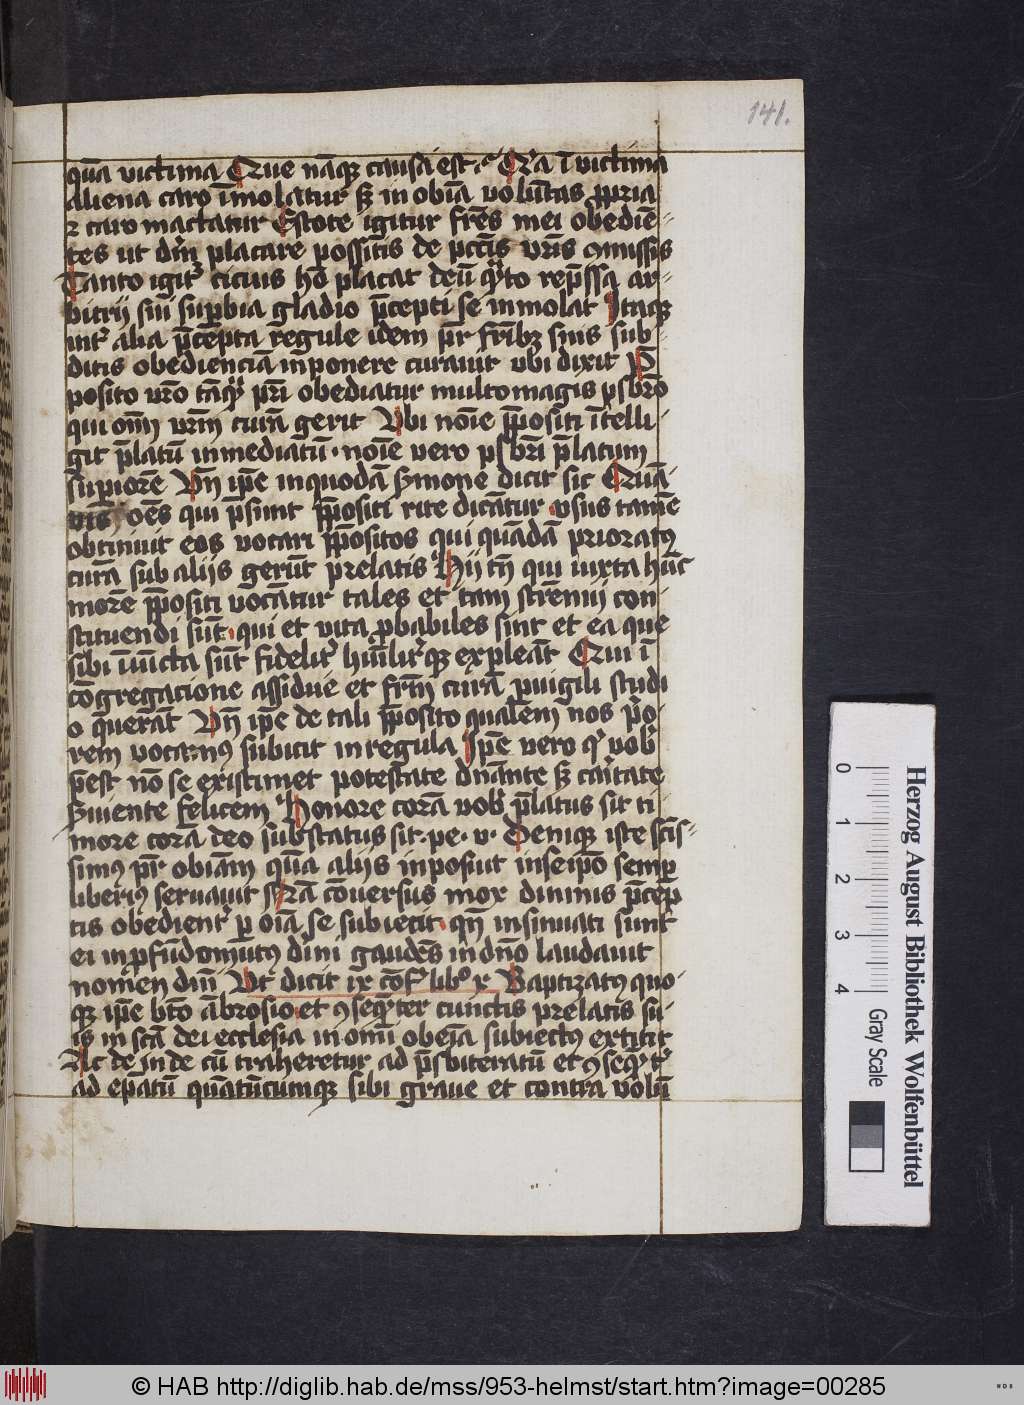 141.
quā victima Que nāq causa est. Q'a ī victima
aliena caro īmolatur sꝫ in obīa volūtas ꝓpria
⁊ caro mactatur Estote igitur frēs mei obediē-
tes ut dm̄ placare possitis de pctīs vrīs ꝯmissis
Tanto igit' cicius hō placat deū q̄to rep̄ssa ar-
bitrij sui suꝑbia gladio p̄cepti se inmolat Itaqꝫ
int' alia p̄cepta regule idem pr̄ frībꝫ suis sub-
ditis obedienciā inponere curauit vbi dixit P̄
posito vr̄o tāq̄ pr̄i obediatur multo magis psbr̄o
qui om̄ vrm̄ curā gerit Vbi noīe p̄positi ītelli-
git p̄latū inmediatū. noīe vero psbr̄i p̄latum
suꝑiorē Vn̄ ip̄e in quodā s̄mone dicit sic Quā-
vis oēs qui p̄sunt p̄positi rite dicātur vsus tamē
obtinuit eos vocari p̄positos qui quādā prioratꝰ
curā sub alijs gerūt prelatis Hij tn̄ qui iuxta hūc
morē p̄positi vocātur tales et tam strēnui con-
stituendi sūt. qui et vita ꝓbabiles sint et ea que
sibi iūcta sūt fidelit' hūilit'qꝫ expleāt Qui ī
cōgregacione assidue et frm̄ curā ꝑuigili studi
o querāt Vn̄ ip̄e de tali p̄posito qualem nos p'o-
rem vocamꝰ subicit in regula Ip̄e vero q' vob'
p̄est nō se existimet potestate dnāte sꝫ caritate
s̄uiente felicem Honore corā vob' p̄latus sit ti
more corā deo substratus sit. pe. v. Deniqꝫ iste sctis-
simꝰ pr̄ obīam quā alijs inposuit in seip̄o semꝑ
liberiꝰ seruauit Nā cōuersus mox diuinis p̄cep
tis obedient' ꝑ oīa se subiecit. qn̄ insinuati sunt
ei in ꝓfūdo mūtꝰ dīni gaudēs in dn̄o laudauit
nomen dm̄ Vt dicit ix cōf' libro x Baptizatꝰ quo-
qꝫ ip̄e bt̄o ābrosio. et ꝯseq̄nter cunctis prelatis su-
is in sctā dei ecclesia in om̄i obeīa subiectus extitit
Ac deinde cū traheretur ad p̄sbiteratū et ꝯseq̄nt'
ad ep̄atū quātūcumqꝫ sibi graue et contra volū
0 1 2 3 4
Herzog August Bibliothek Wolfenbüttel
Gray Scale
© HAB http://diglib.hab.de/mss/953-helmst/start.htm?image=00285